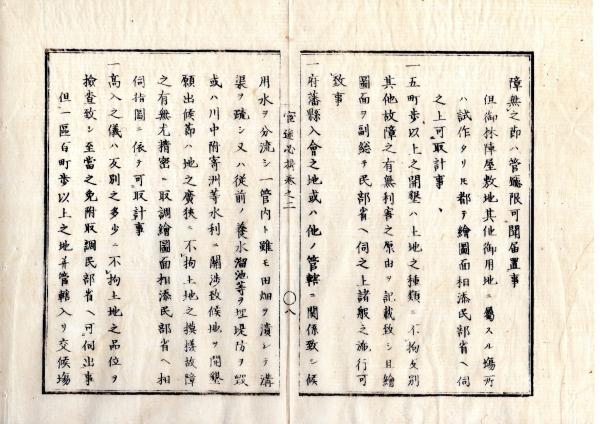 障無之節ハ管轄限可聞届置事
但御林陣屋敷地其他御用地ニ屬スル塲所
ハ試作タリトモ都テ繪圖面相添民部省ヘ伺
之上可取計事
一五町歩以上之開墾ハ土地之種類ニ不拘反別
其他故障之有無利害之原由ヲ記載致シ且繪
圖面ヲ副総テ民部省ヘ伺之上諸般之施行可
致事
一府藩縣入會之地或ハ他ノ管轄ニ関係致シ候
官途必携巻之二
〇八
用水ヲ分流シ一管内ト雖モ田畑ヲ潰シテ溝
渠ヲ疏シ又ハ従前ノ養水溜池等ヲ埋堤防ヲ毀
或ハ川中附寄洲等水利ニ関渉致候地ヲ開墾
願出候節ハ地之廣狭ニ不拘土地之模様故障
之有無尤精密ニ取調繪圖面相添民部省ヘ相
伺指圖ニ依テ可取計事
一高入之儀ハ反別之多少ニ不拘土地之品位ヲ
撿査致シ至當之免附取調民部省ヘ可伺出事
但一區百町歩以上之地并管轄入リ交候塲